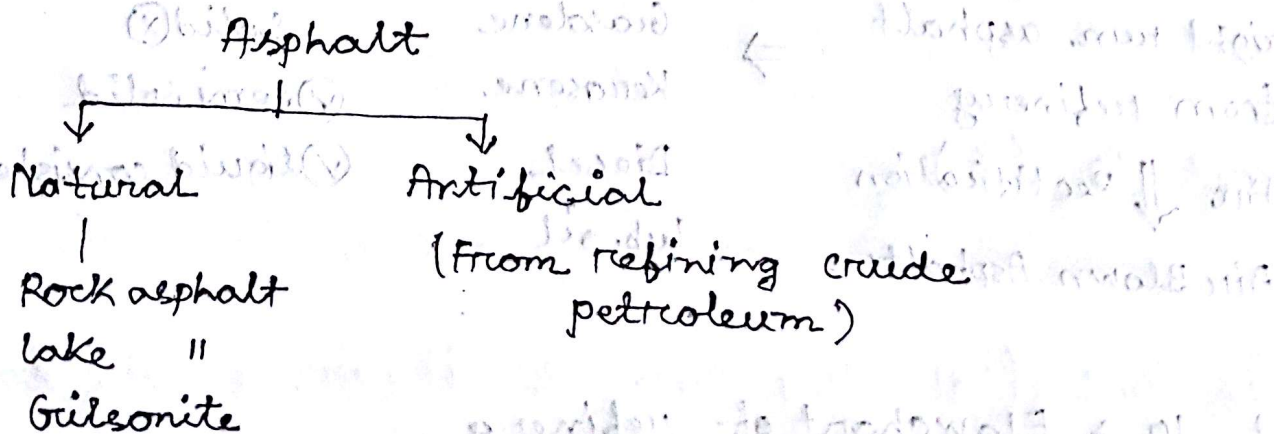 Asphalt
Natural Artificial
(From refining crude
petroleum)
Rock asphalt
lake "
Gilsonite